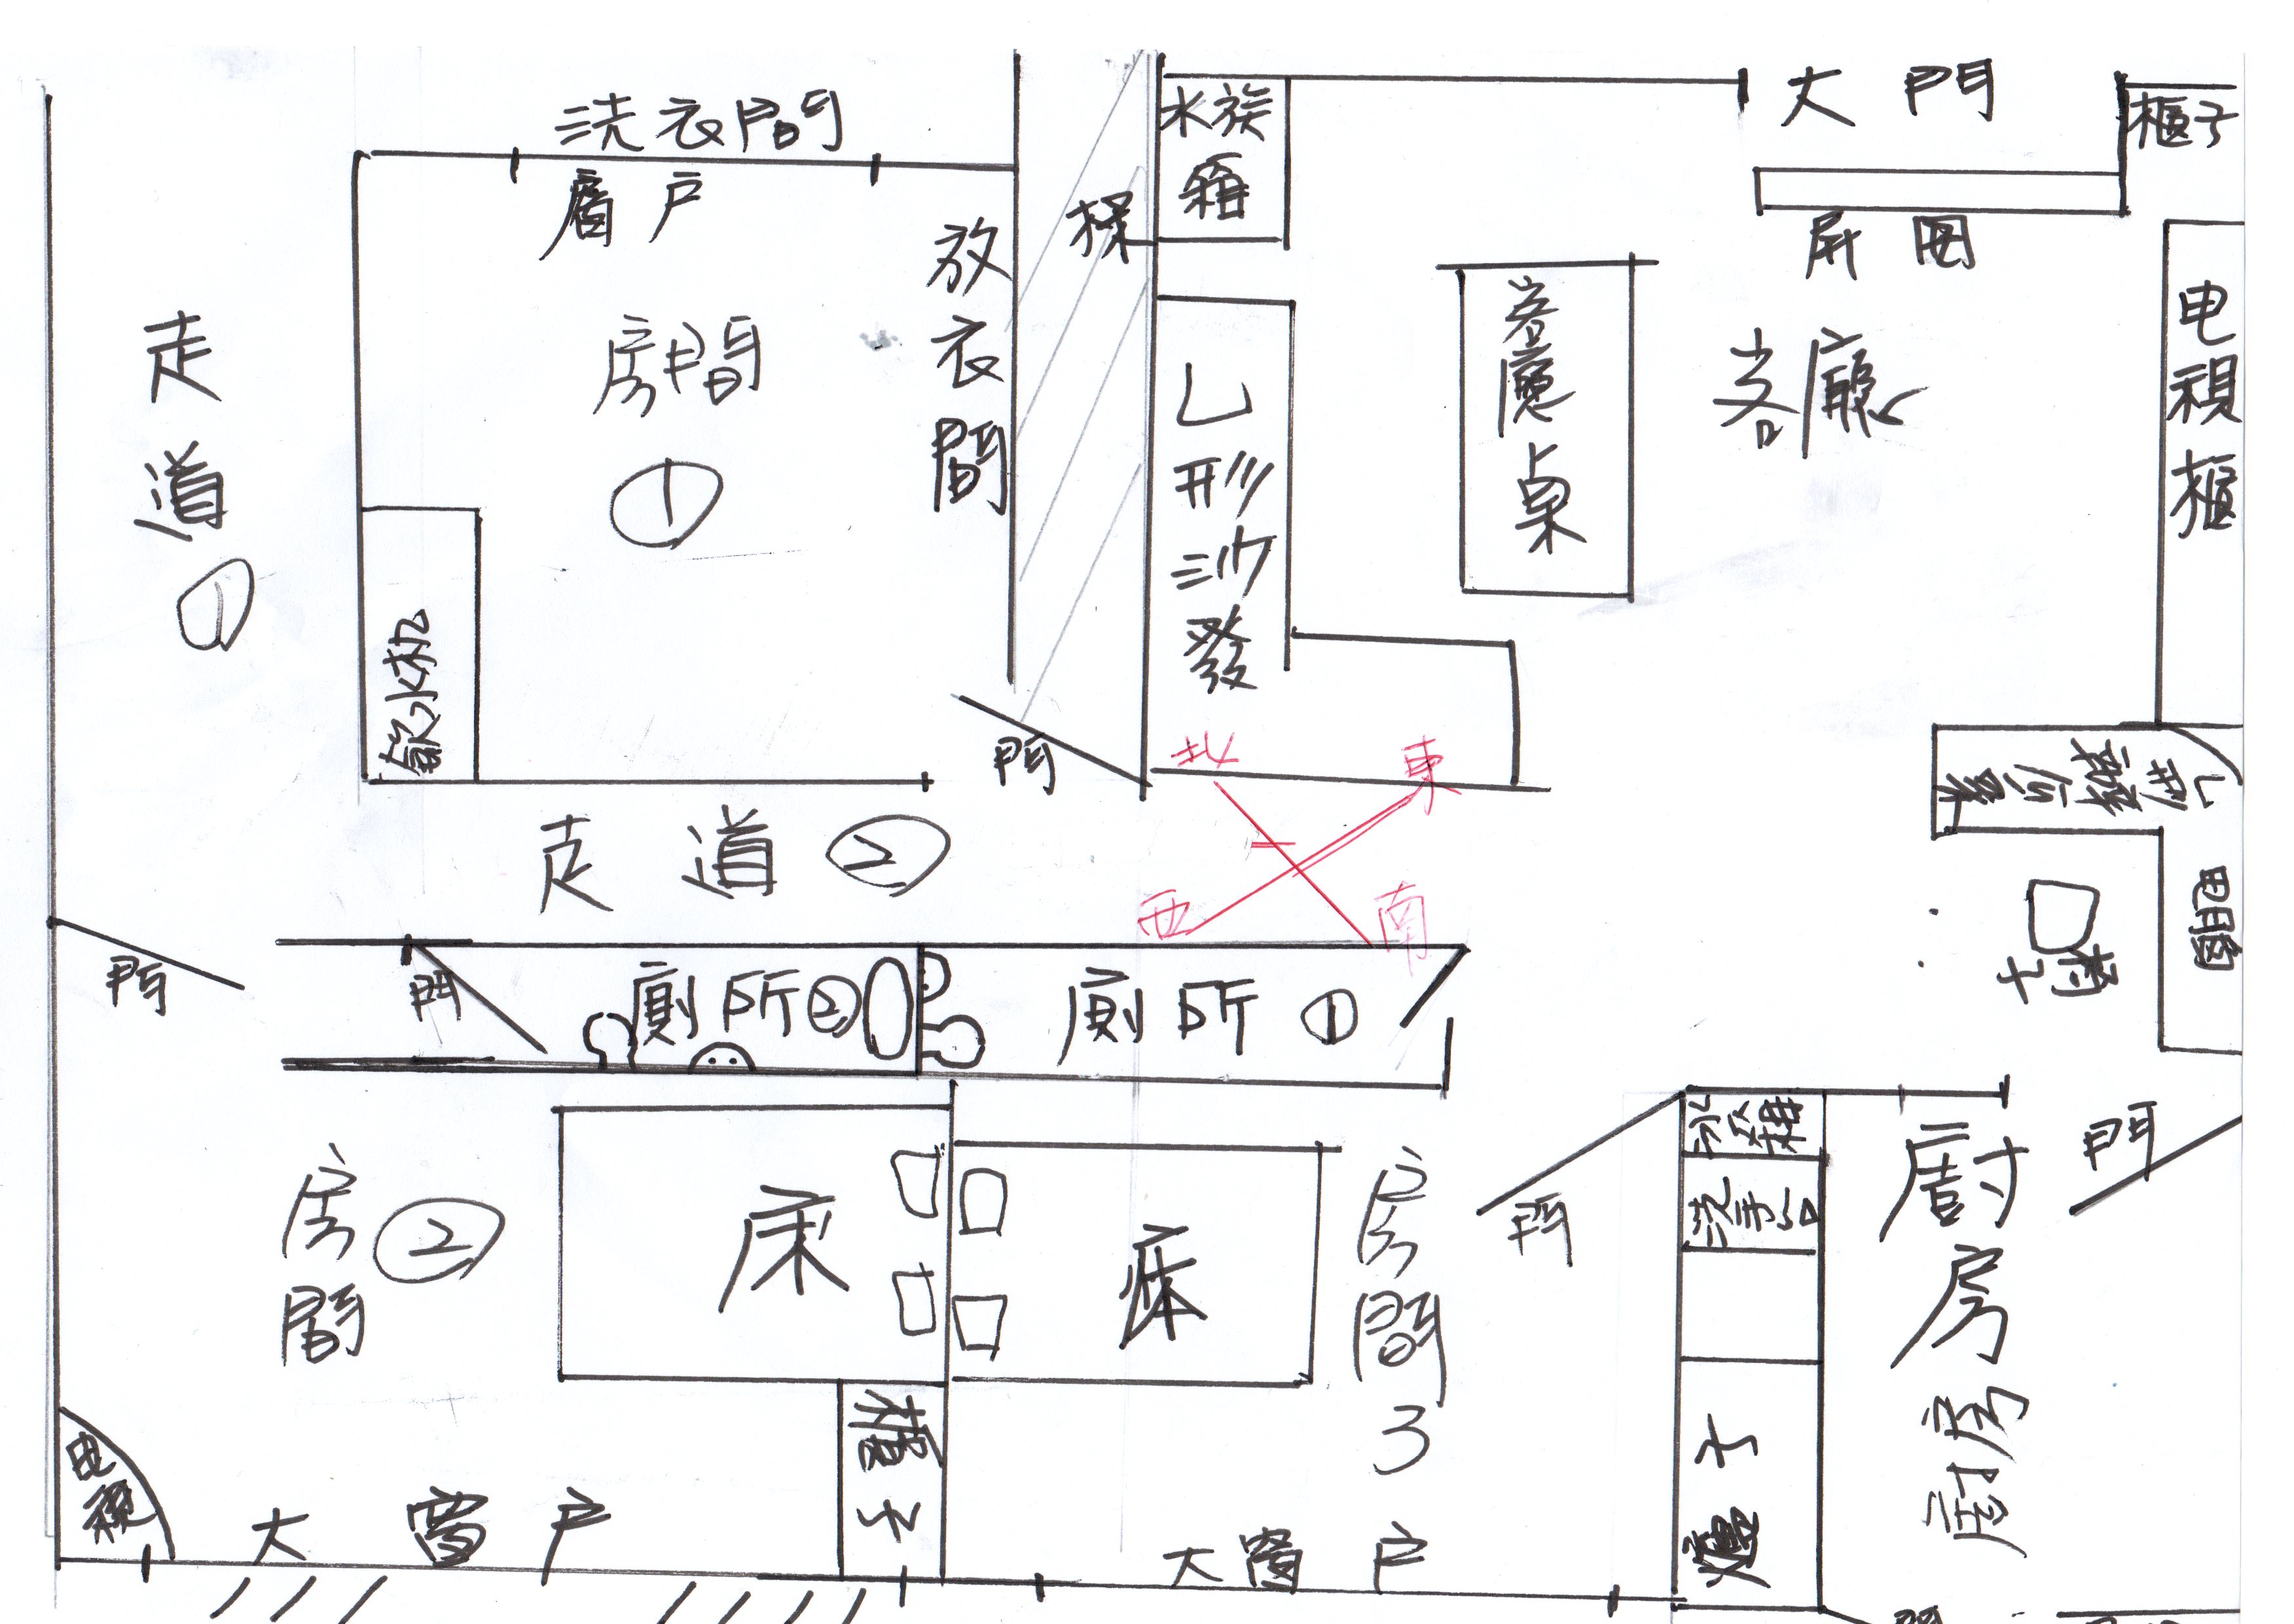 洗衣間
大門
櫃子
水族
箱
窗戶
屏風
樑
放衣間
电視櫃
客廳桌
客廳
走道①
房間①
L形沙發
飲水机
門
北
東
西
南
L形辦公桌
走道②
电腦
椅子
門
門
廁所②
廁所①
冰箱
洗手台
廚房
門
房間②
床
床
房間3
門
櫃子
櫃子
廚房
电視
大窗戶
大窗戶